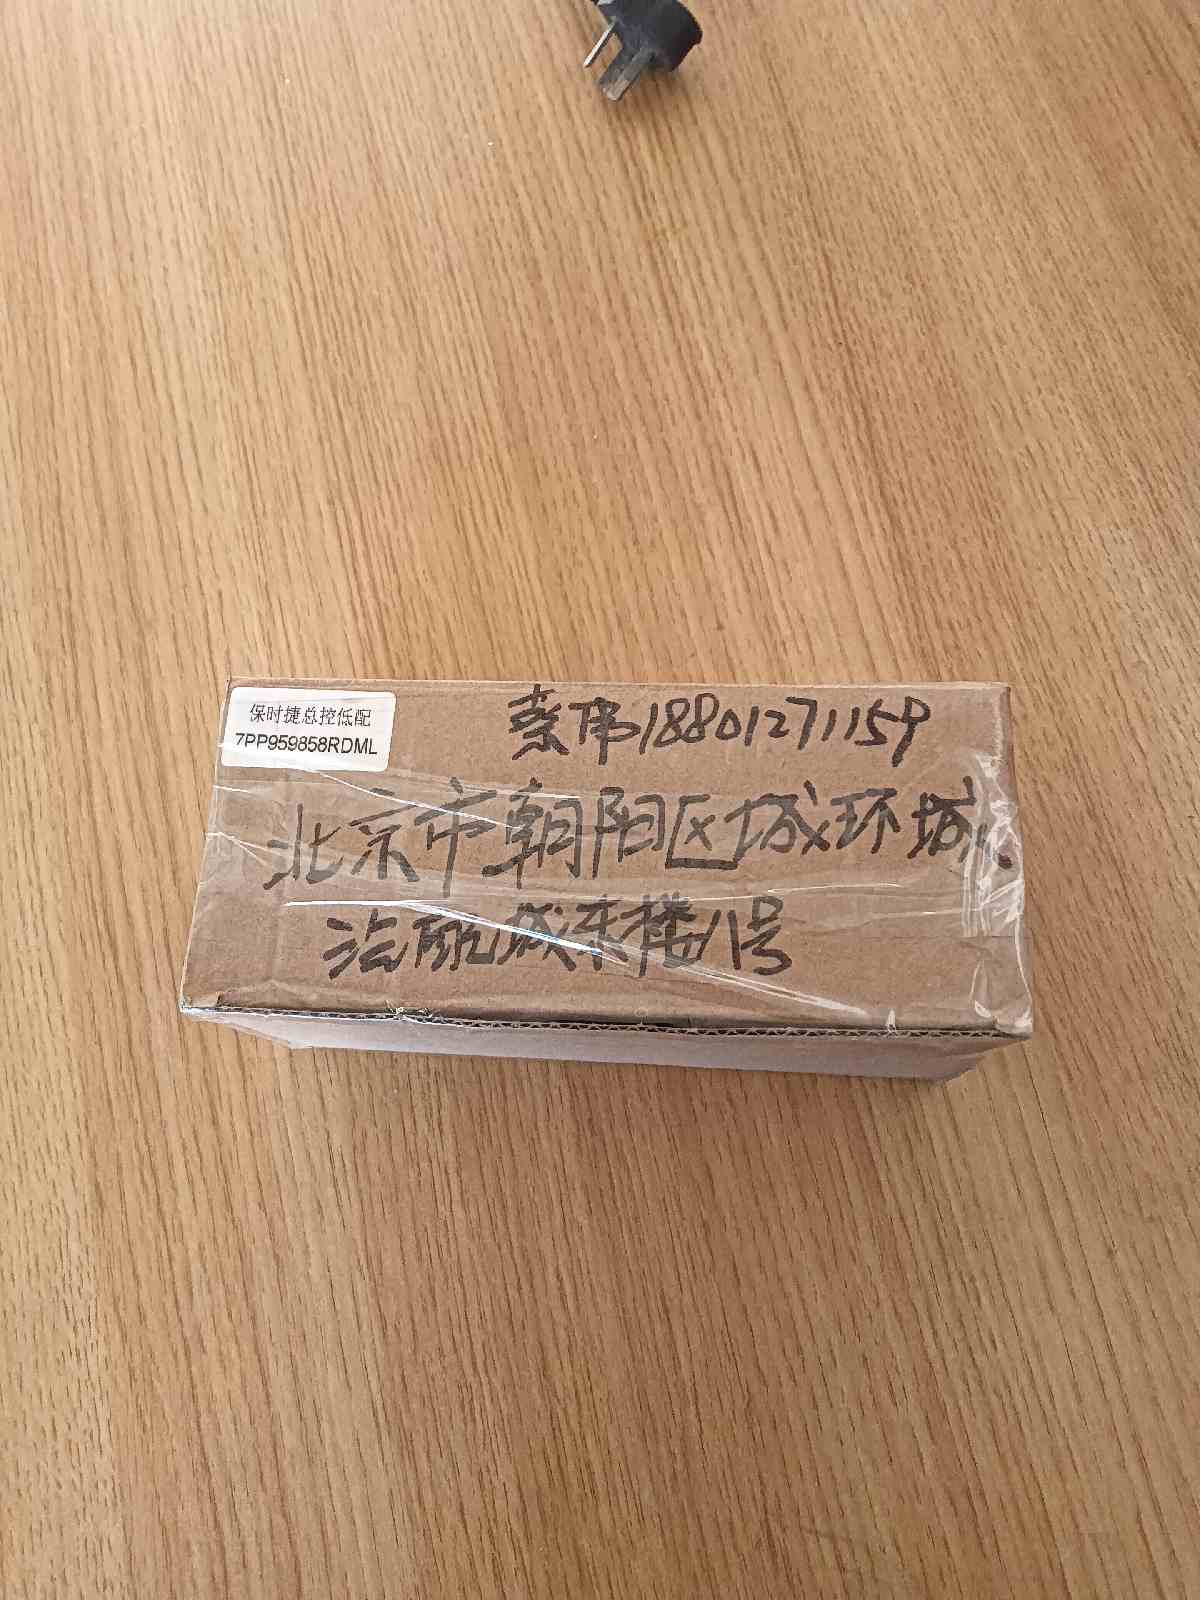 保时捷总控低配
7PP959858RDML
伟18801271159
北京市朝阳区城环城
汽配城东楼18号